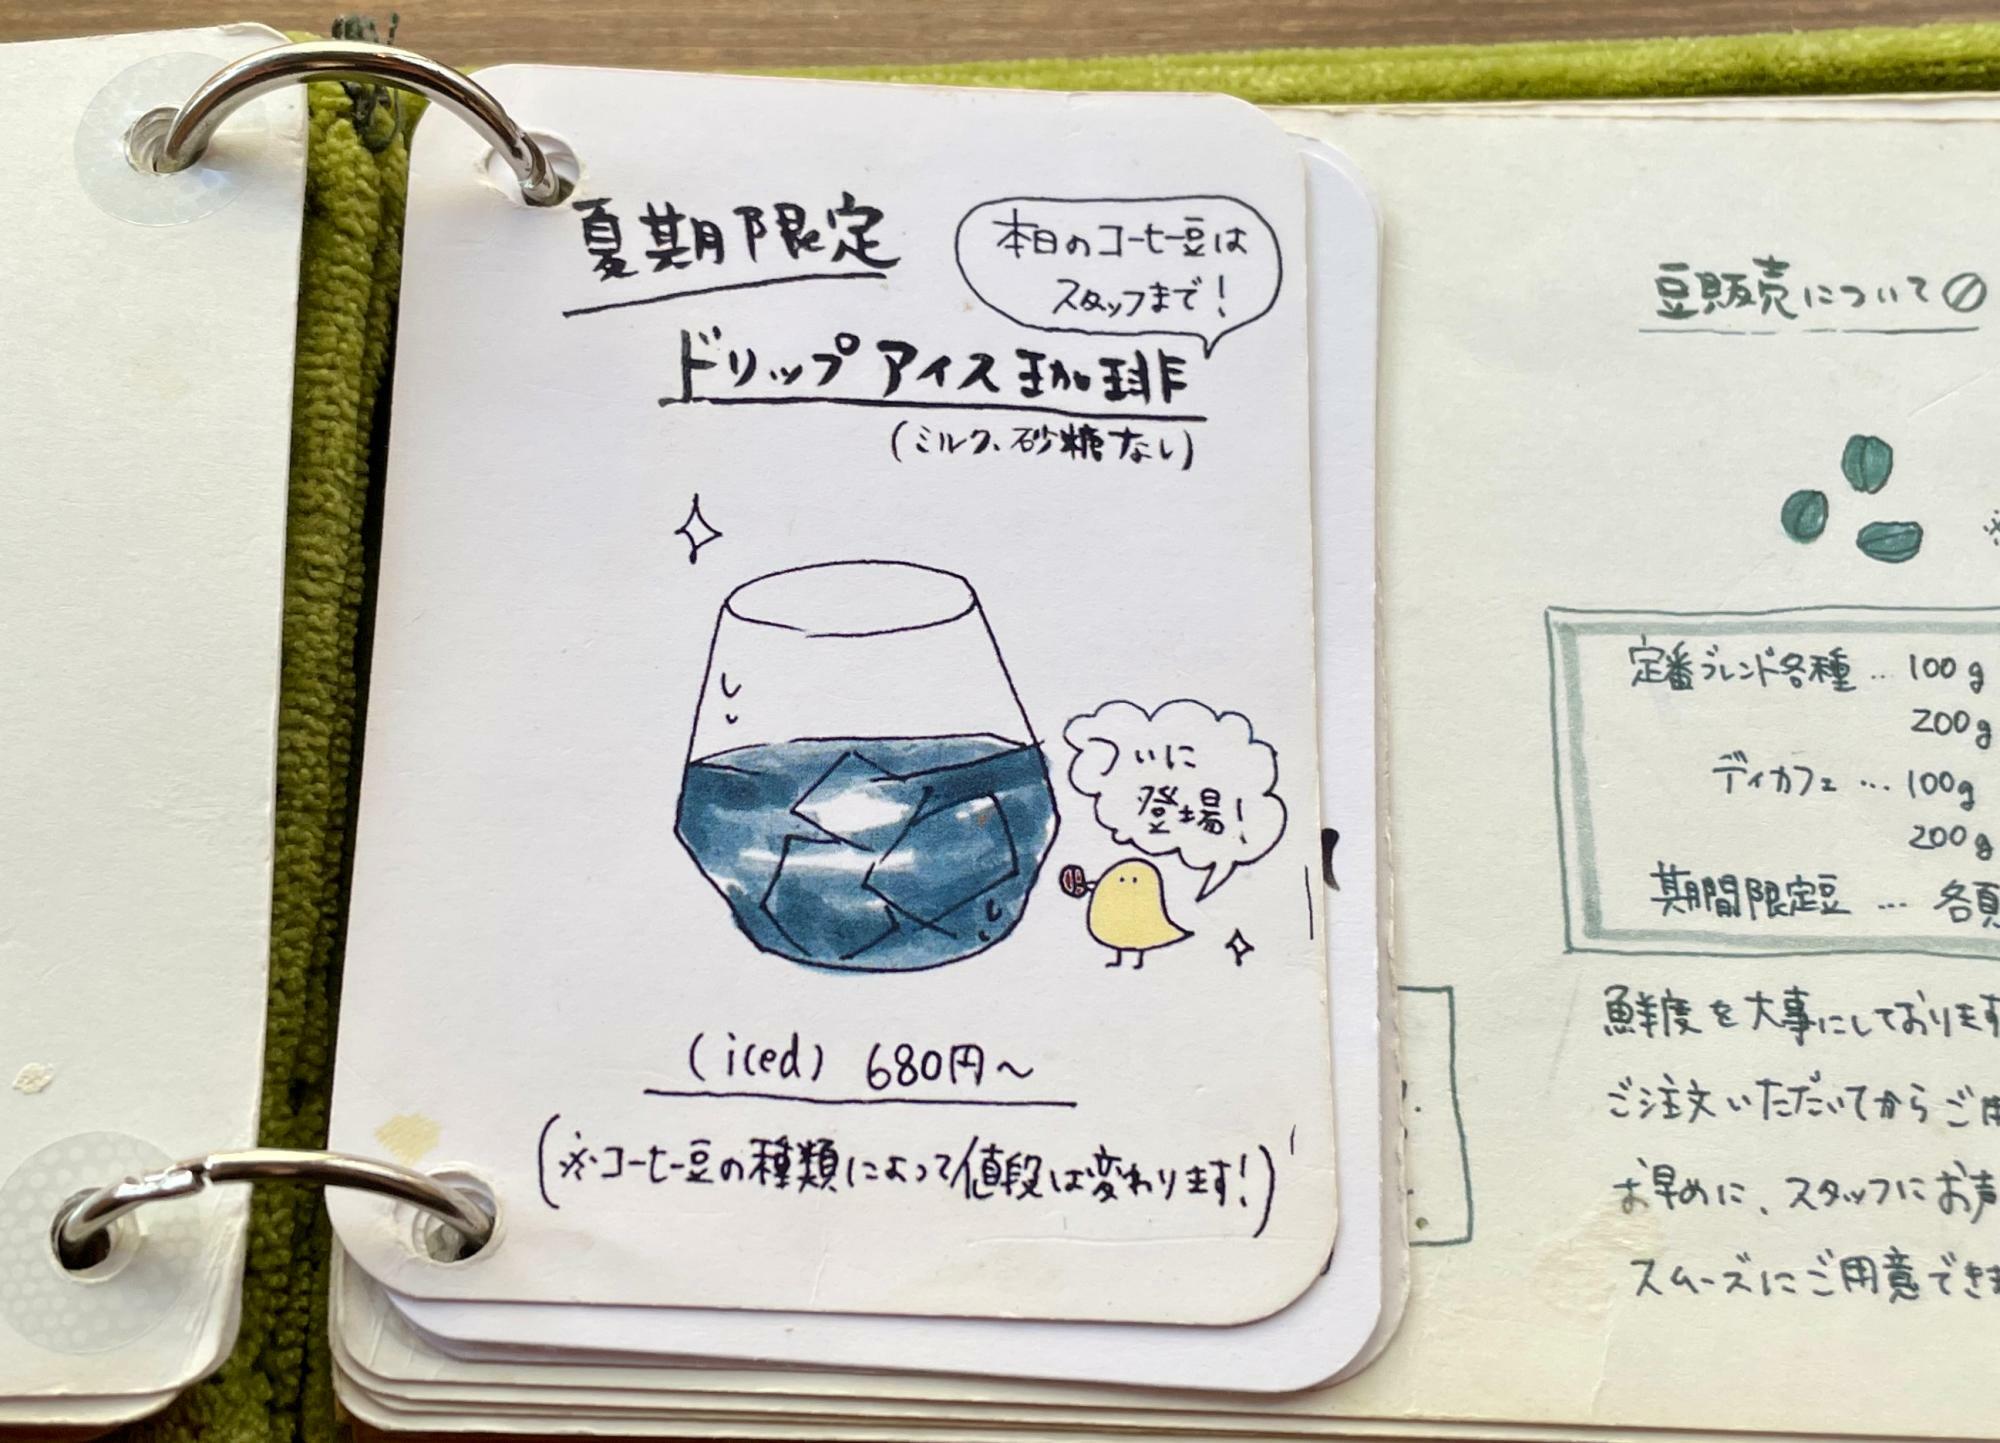 夏期限定
本日のコーヒー豆は
スタッフまで！
ドリップアイス珈琲
(ミルク、砂糖なし)
ついに
登場！
(iced) 680円～
(※コーヒー豆の種類によって値段は変わります!)
豆販売について
定番ブレンド各種 … 100g
200g
ディカフェ … 100g
200g
期間限定豆 … 各
鮮度を大事にしております
ご注文いただいてからご用
お早めに、スタッフにお声
スムーズにご用意でき